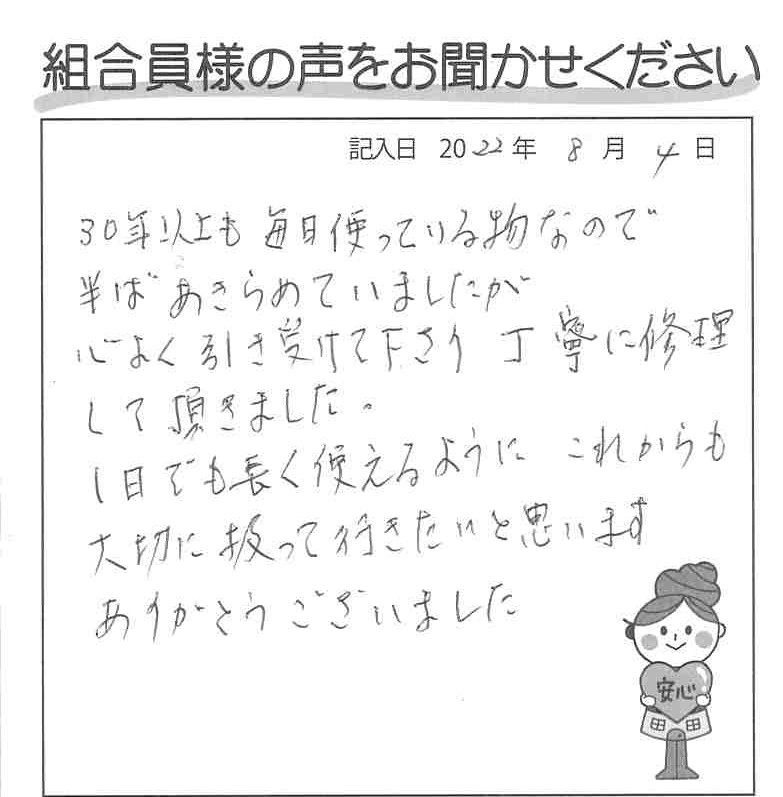 組合員様の声をお聞かせください
記入日 2022年 8月 4日
30年以上も 毎日使っている物なので
半ば あきらめていましたが
心よく引き受けて下さり 丁寧に修理
して頂きました。
1日でも長く使えるように これからも
大切に扱って行きたいと思います
ありがとうございました
安心